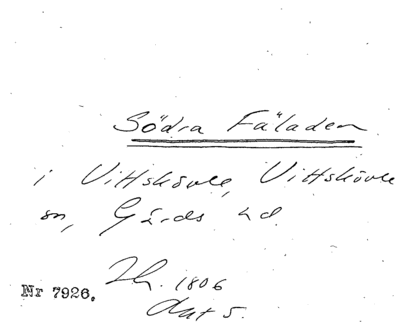 Södra Fäladen
i Vittskövle, Vittskövle
sn, Gärds hd.
Lh. 1806
Akt 5.
Nr 7926.